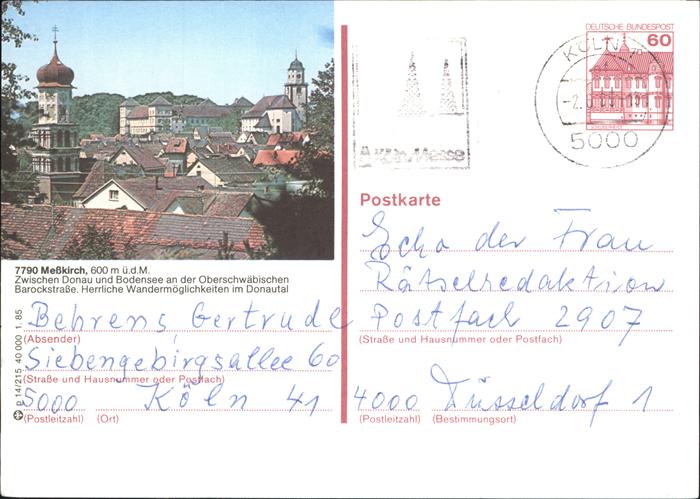 7790 Meßkirch, 600 m ü.d.M.
Zwischen Donau und Bodensee an der Oberschwäbischen
Barockstraße. Herrliche Wandermöglichkeiten im Donautal
Behrens Gertrude
(Absender)
Siebengebirgsallee 60
(Straße und Hausnummer oder Postfach)
5000 Köln 41
(Postleitzahl) (Ort)
p 14/215 40 000 1.85
DEUTSCHE BUNDESPOST
60
KÖLN
-2.
5000
Köln Messe
Postkarte
Echo der Frau
Rätselredaktion
Postfach 2907
(Straße und Hausnummer oder Postfach)
4000 Düsseldorf 1
(Postleitzahl) (Bestimmungsort)